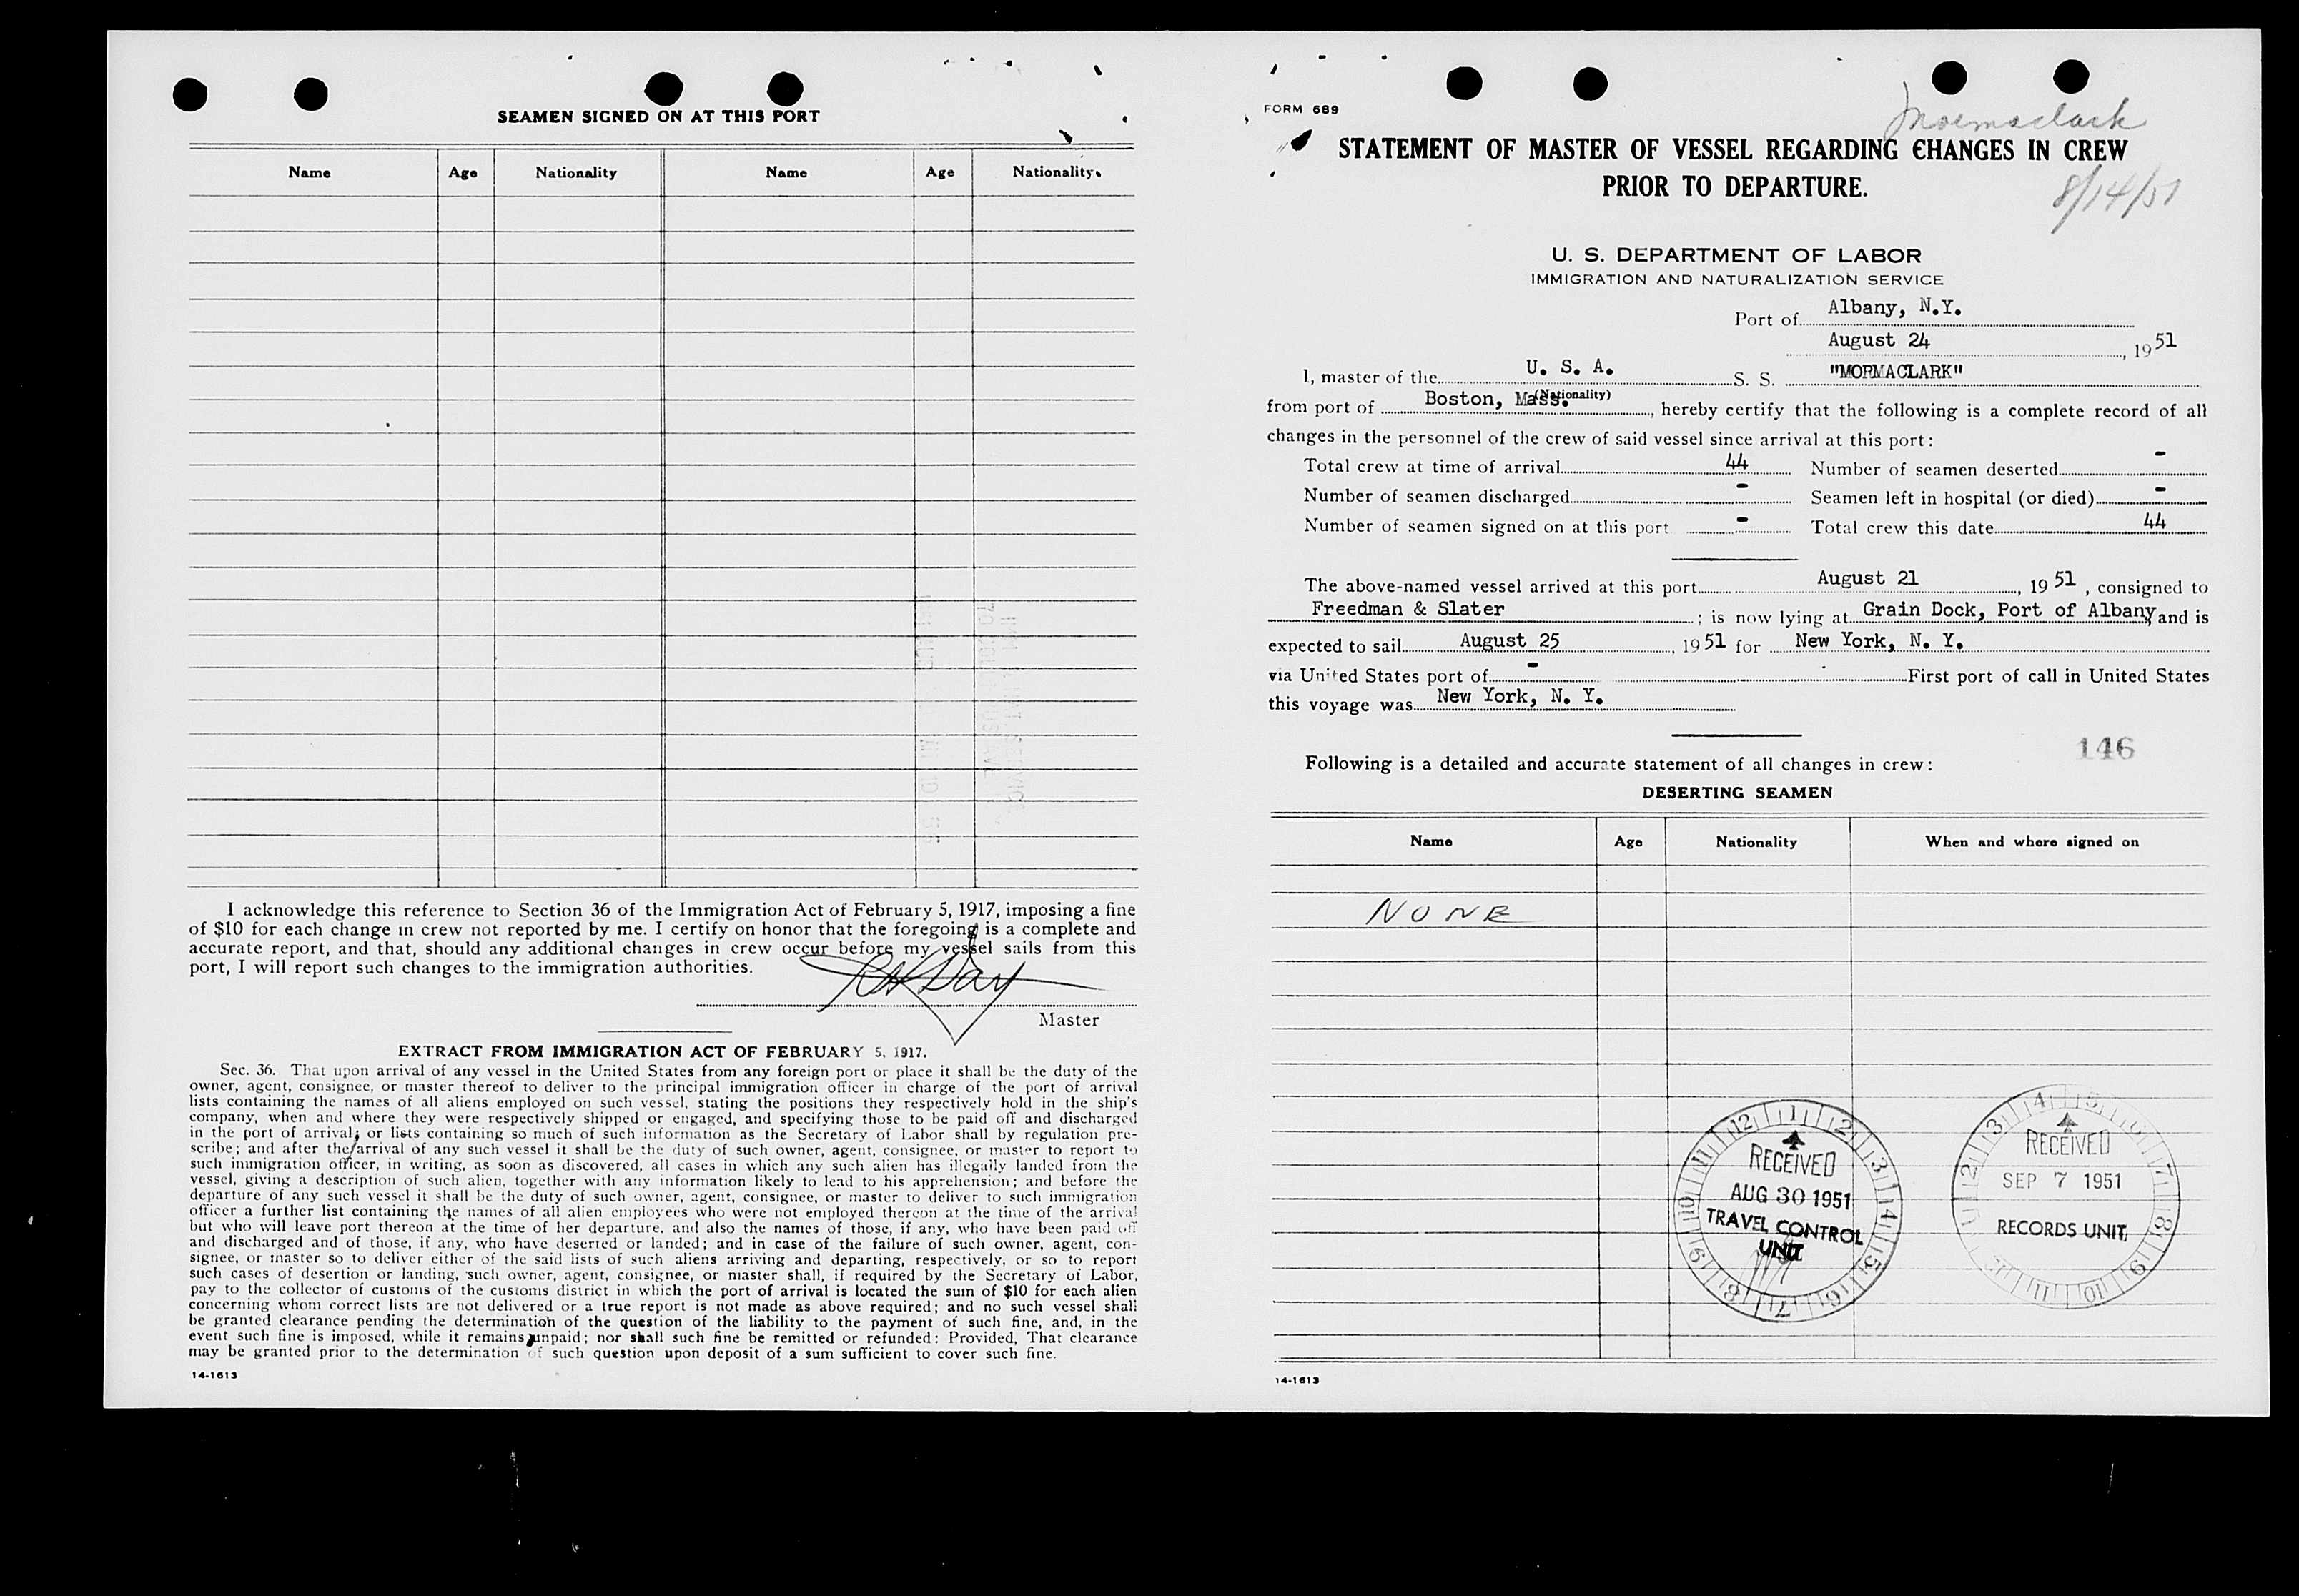 SEAMEN SIGNED ON AT THIS PORT
Name Age Nationality Name Age Nationality
I acknowledge this reference to Section 36 of the Immigration Act of February 5, 1917, imposing a fine
of $10 for each change in crew not reported by me. I certify on honor that the foregoing is a complete and
accurate report, and that, should any additional changes in crew occur before my vessel sails from this
port, I will report such changes to the immigration authorities.
Master
EXTRACT FROM IMMIGRATION ACT OF FEBRUARY 5, 1917.
Sec. 36. That upon arrival of any vessel in the United States from any foreign port or place it shall be the duty of the
owner, agent, consignee, or master thereof to deliver to the principal immigration officer in charge of the port of arrival
lists containing the names of all aliens employed on such vessel, stating the positions they respectively hold in the ship's
company, when and where they were respectively shipped or engaged, and specifying those to be paid off and discharged
in the port of arrival; or lists containing so much of such information as the Secretary of Labor shall by regulation pre-
scribe; and after the arrival of any such vessel it shall be the duty of such owner, agent, consignee, or master to report to
such immigration officer, in writing, as soon as discovered, all cases in which any such alien has illegally landed from the
vessel, giving a description of such alien, together with any information likely to lead to his apprehension; and before the
departure of any such vessel it shall be the duty of such owner, agent, consignee, or master to deliver to such immigration
officer a further list containing the names of all alien employees who were not employed thereon at the time of the arrival
but who will leave port thereon at the time of her departure, and also the names of those, if any, who have been paid off
and discharged and of those, if any, who have deserted or landed; and in case of the failure of such owner, agent, con-
signee, or master so to deliver either of the said lists of such aliens arriving and departing, respectively, or so to report
such cases of desertion or landing, such owner, agent, consignee, or master shall, if required by the Secretary of Labor,
pay to the collector of customs of the customs district in which the port of arrival is located the sum of $10 for each alien
concerning whom correct lists are not delivered or a true report is not made as above required; and no such vessel shall
be granted clearance pending the determination of the question of the liability to the payment of such fine, and, in the
event such fine is imposed, while it remains unpaid; nor shall such fine be remitted or refunded: Provided, That clearance
may be granted prior to the determination of such question upon deposit of a sum sufficient to cover such fine.
14-1613
FORM 689
Mormaclark
STATEMENT OF MASTER OF VESSEL REGARDING CHANGES IN CREW
PRIOR TO DEPARTURE.
8/14/51
U. S. DEPARTMENT OF LABOR
IMMIGRATION AND NATURALIZATION SERVICE
Port of Albany, N.Y.
August 24, 1951
I, master of the U. S. A. S. S. "MORMACLARK"
(Nationality)
from port of Boston, Mass., hereby certify that the following is a complete record of all
changes in the personnel of the crew of said vessel since arrival at this port:
Total crew at time of arrival 44 Number of seamen deserted -
Number of seamen discharged - Seamen left in hospital (or died) -
Number of seamen signed on at this port - Total crew this date 44
The above-named vessel arrived at this port August 21, 1951, consigned to
Freedman & Slater; is now lying at Grain Dock, Port of Albany and is
expected to sail August 25, 1951 for New York, N. Y.
via United States port of - First port of call in United States
this voyage was New York, N. Y.
146
Following is a detailed and accurate statement of all changes in crew:
DESERTING SEAMEN
Name Age Nationality When and where signed on
NONE
RECEIVED
AUG 30 1951
TRAVEL CONTROL
UNIT
RECEIVED
SEP 7 1951
RECORDS UNIT
14-1613